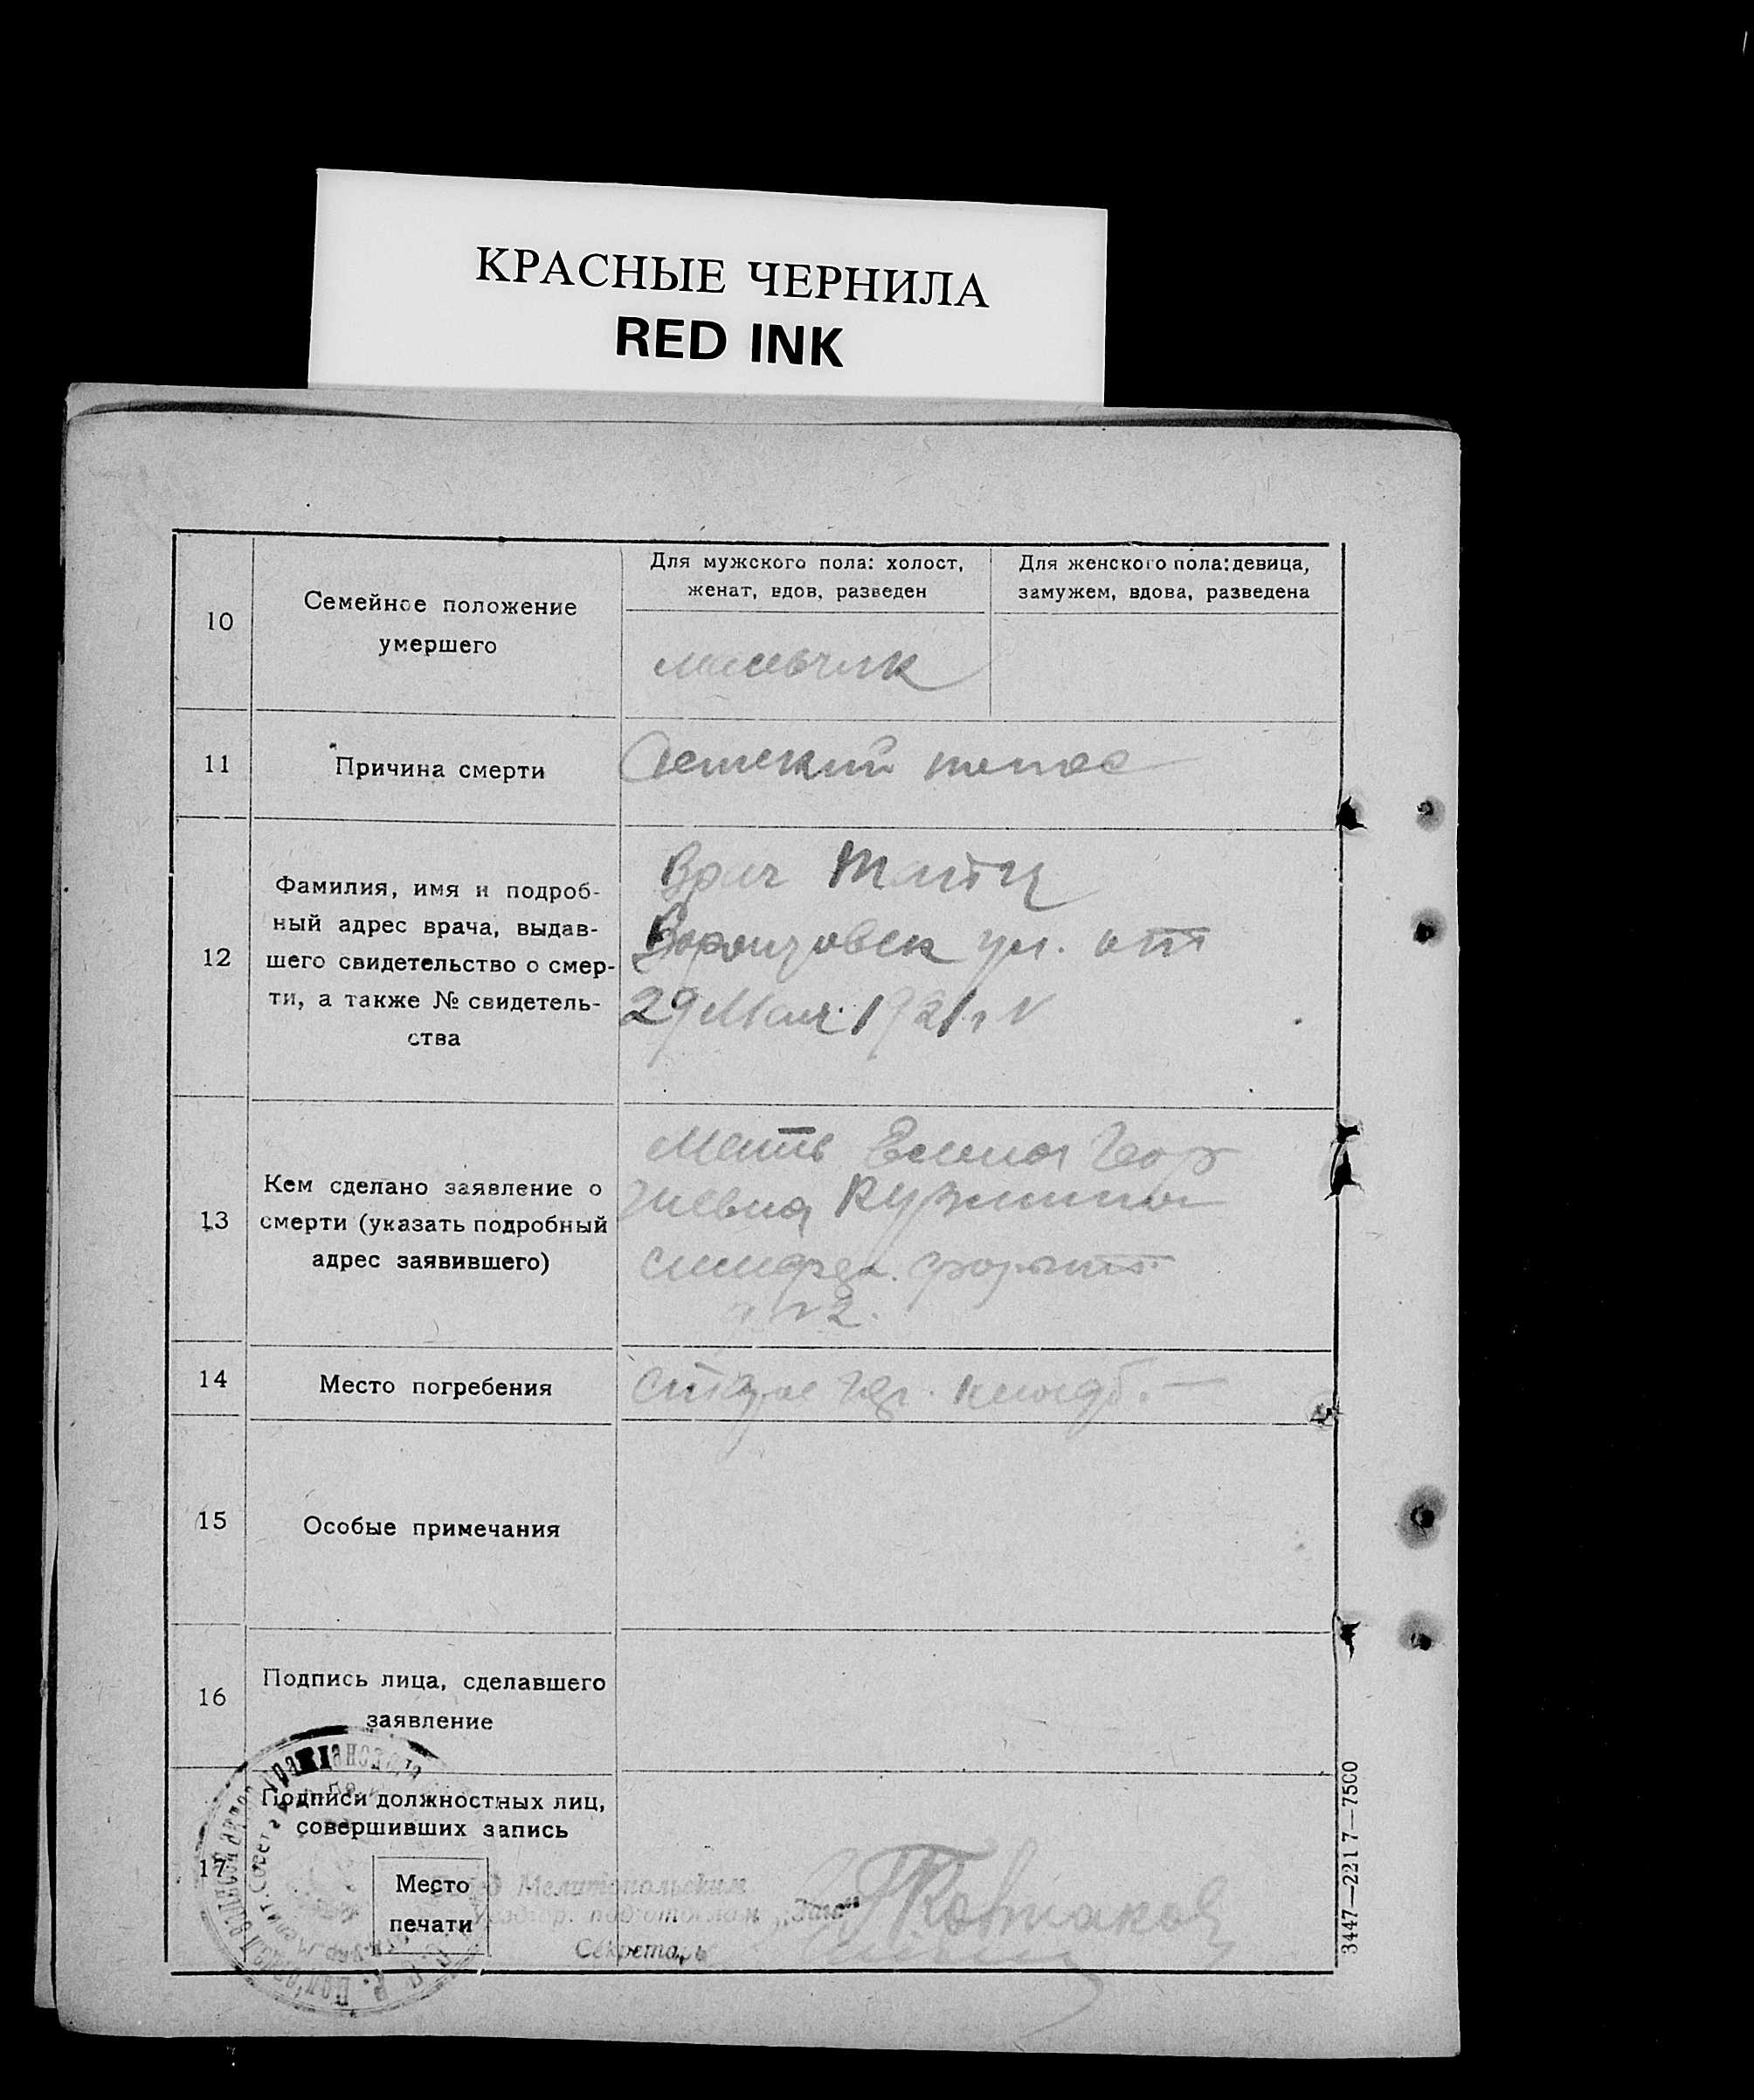 КРАСНЫЕ ЧЕРНИЛА
RED INK
10
Семейное положение
умершего
Для мужского пола: холост,
женат, вдов, разведен
Для женского пола: девица,
замужем, вдова, разведена
мальчик
11
Причина смерти
Детский
12
Фамилия, имя и подроб-
ный адрес врача, выдав-
шего свидетельство о смер-
ти, а также № свидетель-
ства
Врач
Воронцовск ул. от
29 Мая 1921 г. №
13
Кем сделано заявление о
смерти (указать подробный
адрес заявившего)
Мать Елена Геор
гиевна Кузмина
2.
14
Место погребения
Старое гор. кладб. —
15
Особые примечания
16
Подпись лица, сделавшего
заявление
17
Подписи должностных лиц,
совершивших запись
Место
печати
Мелитопольским
подотделом „Загс“
Секретарь
3447—221 7—7500